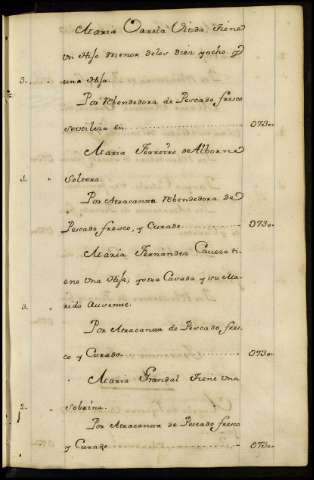 Maria Garcia Viuda, tiene
un Hijo menor de los diez y ocho, y
3. una Hija.
Por Rebendedora de Pescado fresco
se utiliza en 073..
Maria Ferreiro de Alborne
1. Soltera.
Por Atracanza Rebendedora de
Pescado fresco, y Curado 073..
Maria Fernandez Casera ti
ene una Hija, y otra Casada y su Ma
3. rido Ausente.
Por Atracanza de Pescado fres
co y Curado 073..
Maria Grandal tiene una
2. Sobrina.
Por Atracanza de Pescado fresco
y Curado 073..